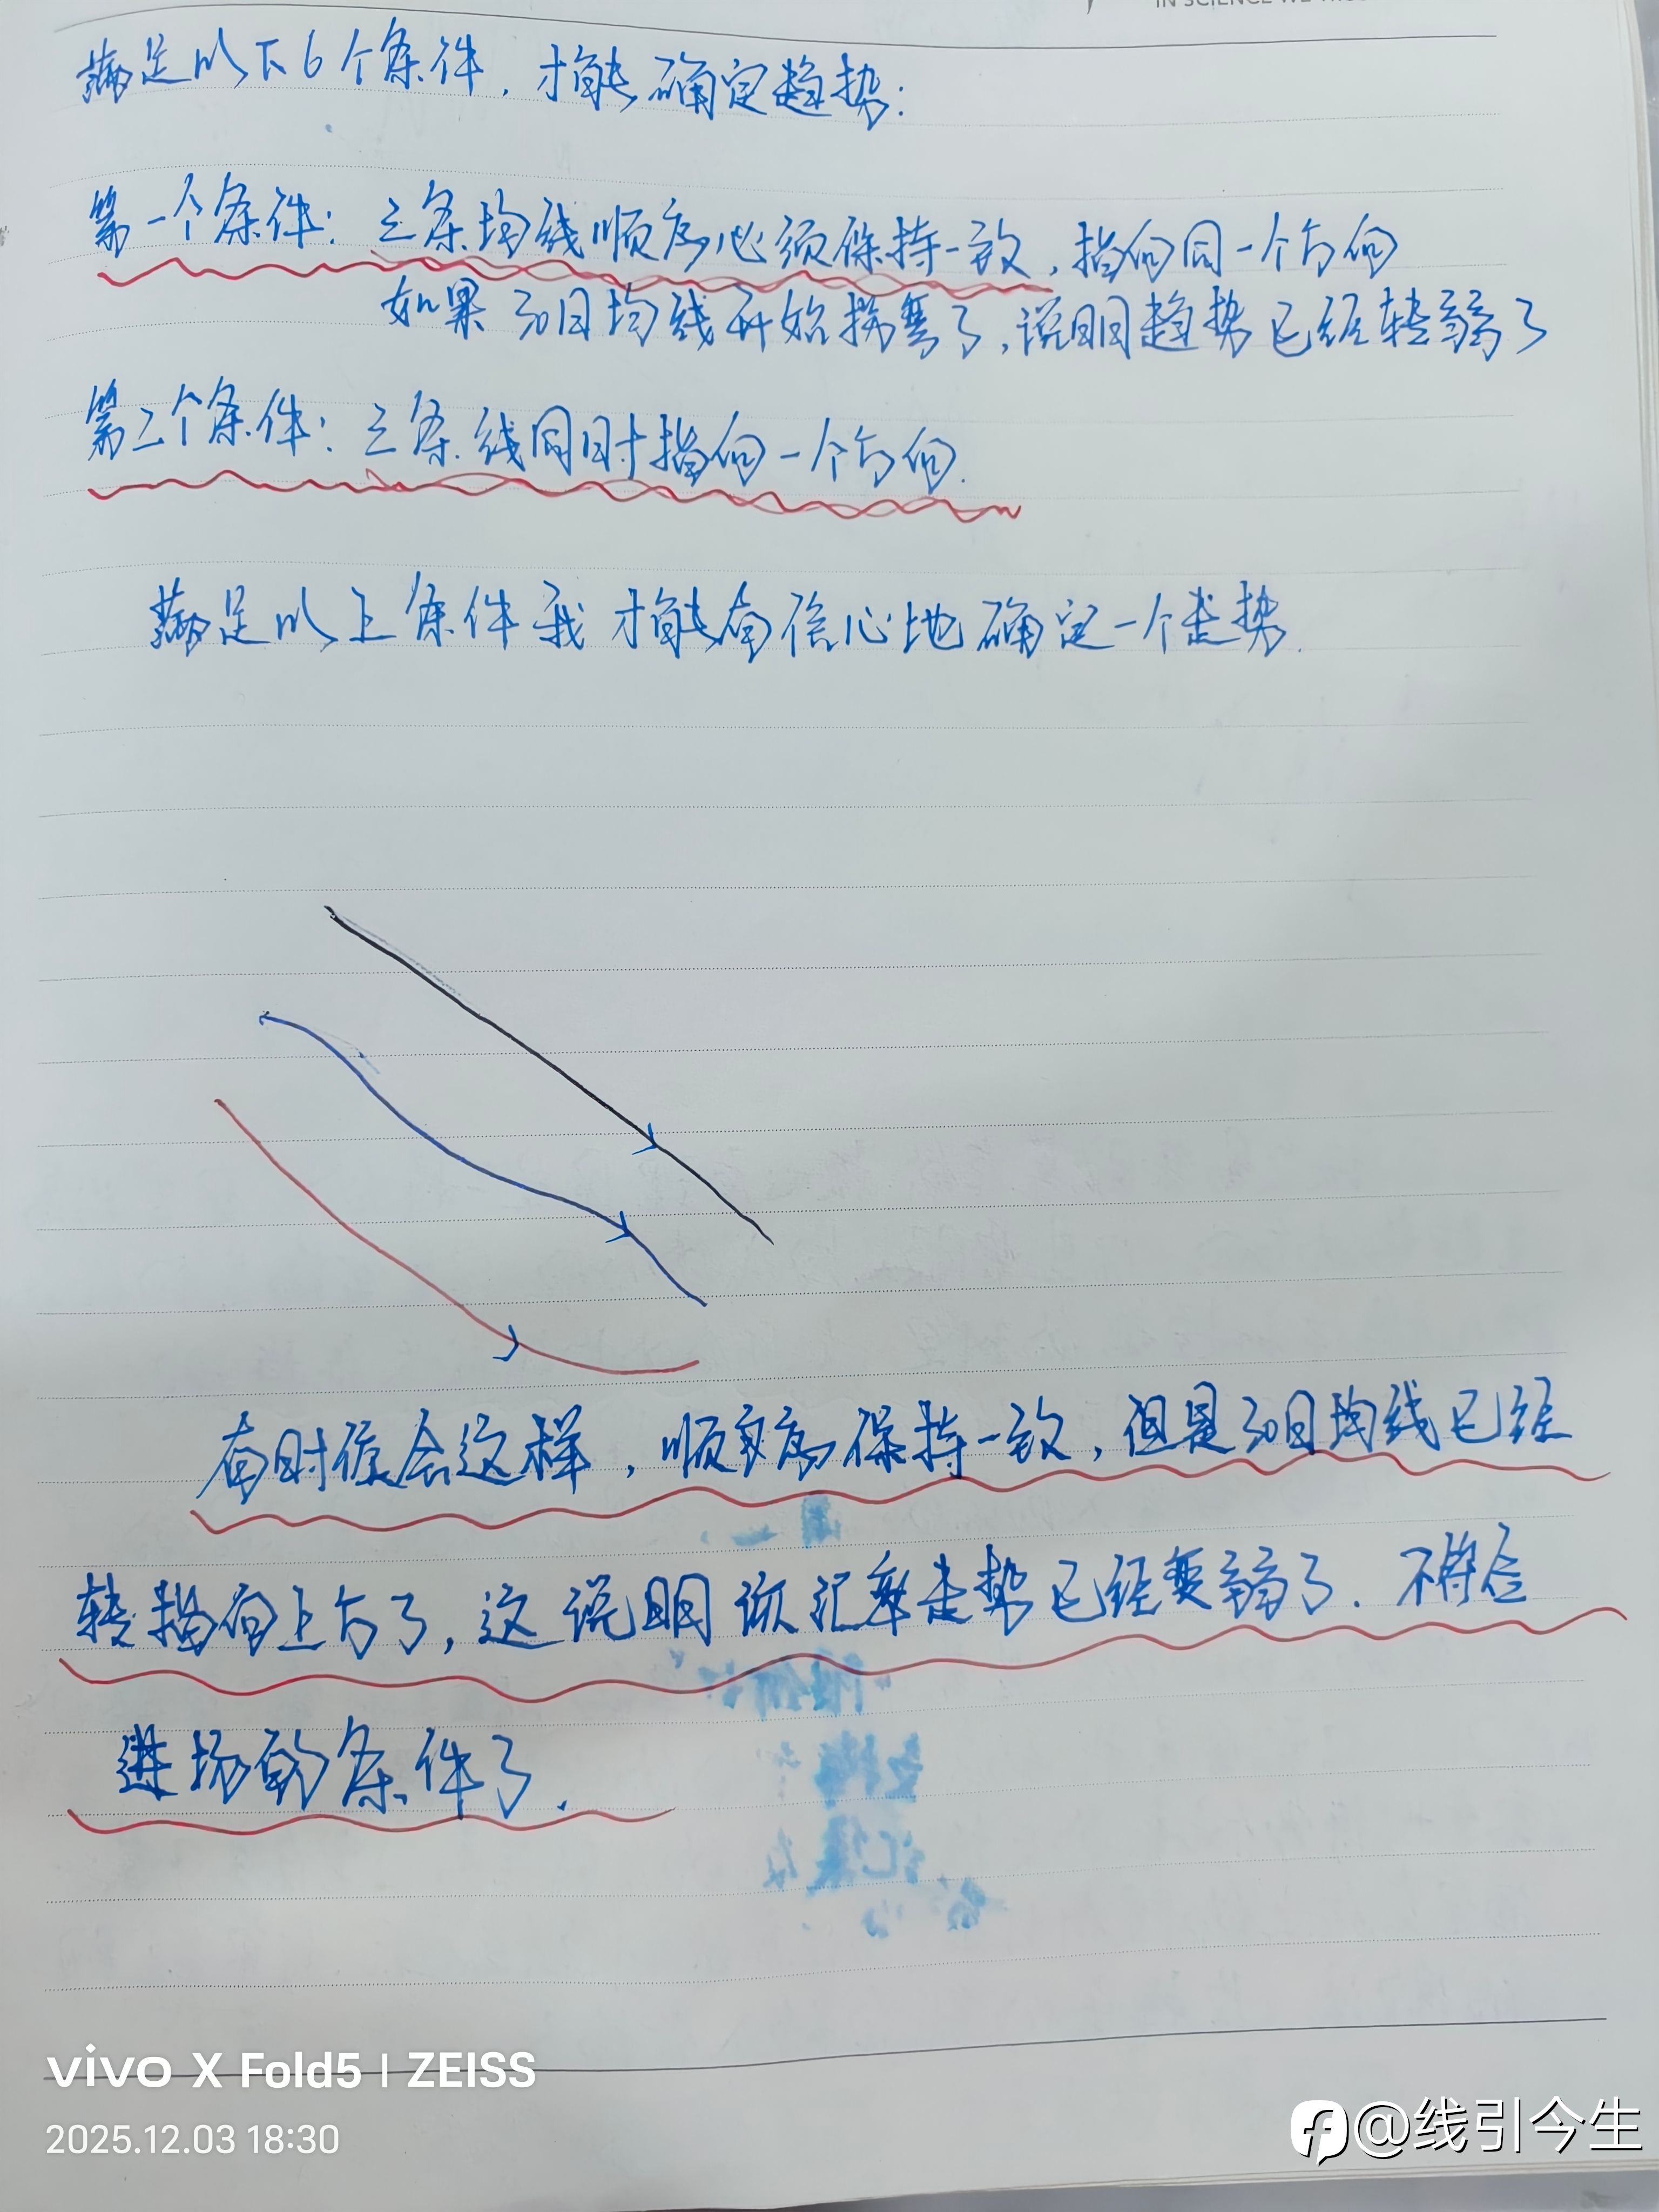 IN SCIENCE WE TRUST
满足以下6个条件，才能确定趋势：
第一个条件：三条均线顺序必须保持一致，指向同一个方向
如果30日均线开始拐弯了，说明趋势已经转弱了
第二个条件：三条线同时指向一个方向.
满足以上条件我才能有信心地确定一个走势.
有时候会这样，顺序保持一致，但是30日均线已经
转指向上方了，这说明该汇率走势已经变弱了.不符合
进场的条件了.
vivo X Fold5 | ZEISS
2025.12.03 18:30
@线引今生